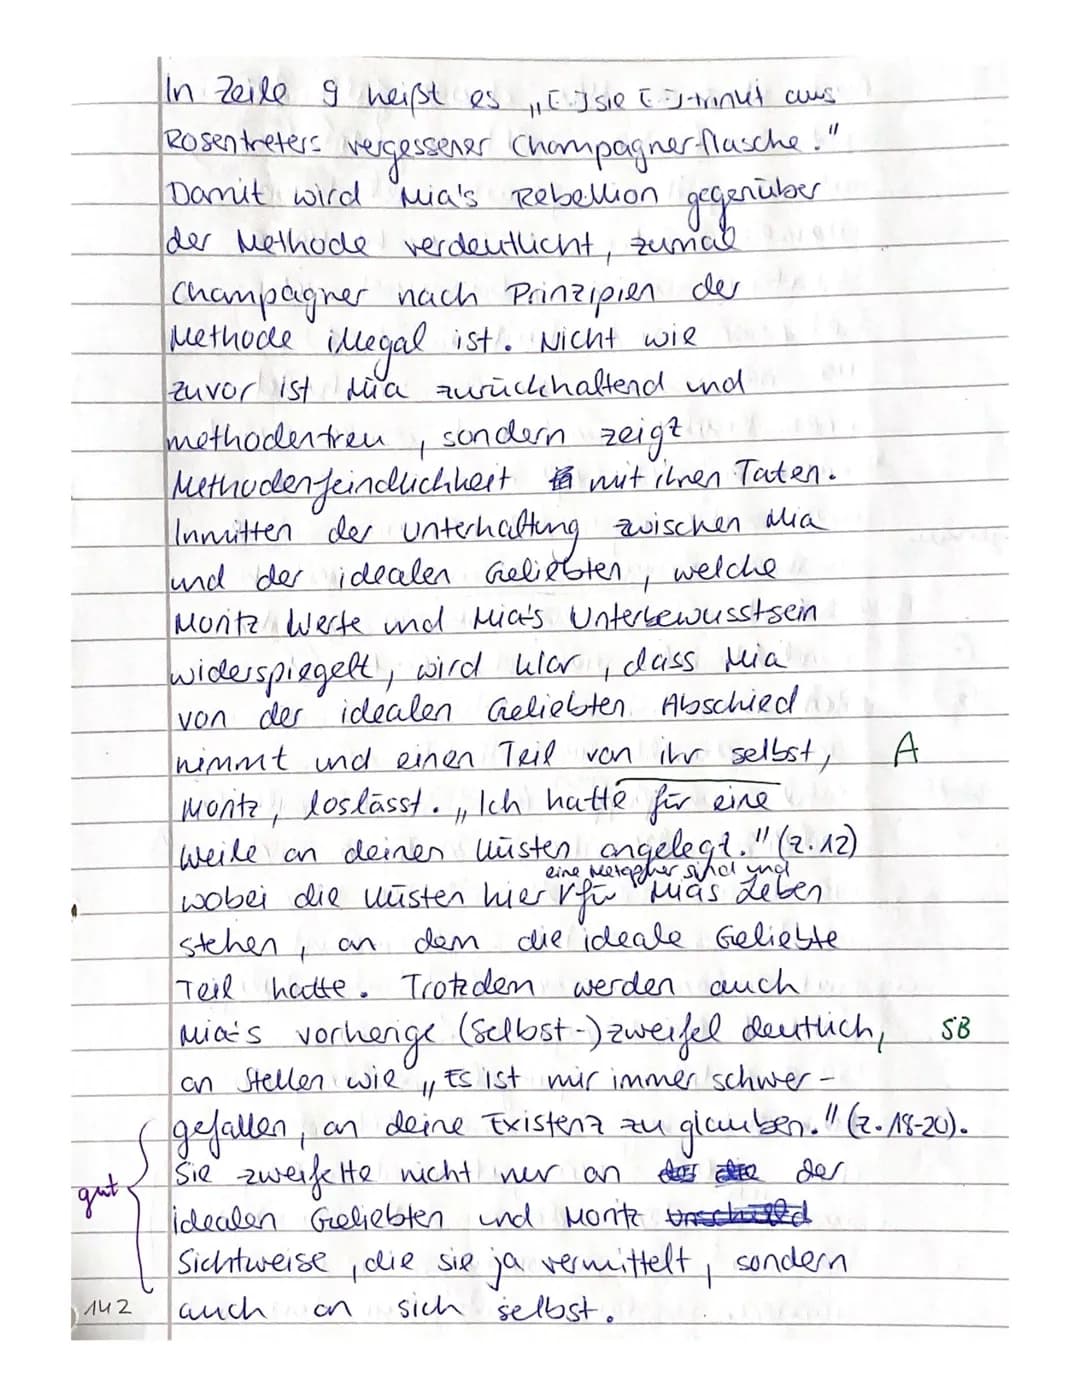 In Zeile 9 heißt es „[..]sie [..] trinkt aus
Rosentreters vergessener Champagnerflasche."
Damit wird Mia's Rebellion gegenüber
der Methode verdeutlicht, zumal
Champagner nach Prinzipien der
Methode illegal ist. Nicht wie
zuvor ist Mia zurückhaltend und
methodentreu, sondern zeigt
Methodenfeindlichkeit mit ihren Taten.
Inmitten der Unterhaltung zwischen Mia
und der idealen Geliebten, welche
Moritz Werte und Mia's Unterbewusstsein
widerspiegelt, wird klar, dass Mia
von der idealen Geliebten Abschied
nimmt und einen Teil von ihr selbst, A
Moritz, loslässt. „Ich hatte für eine
Weile an deinen Küsten angelegt." (Z.12)
eine Metapher sind und
wobei die Küsten hier für Mias Leben
stehen, an dem die ideale Geliebte
Teil hatte. Trotzdem werden auch
Mia's vorherige (Selbst-)zweifel deutlich, SB
an Stellen wie „Es ist mir immer schwer-
gefallen, an deine Existenz zu glauben." (Z.18-20).
Sie zweifelte nicht nur an der
gut
idealen Geliebten und Moritz Unschuld
Sichtweise, die sie ja vermittelt, sondern
142 auch an sich selbst.